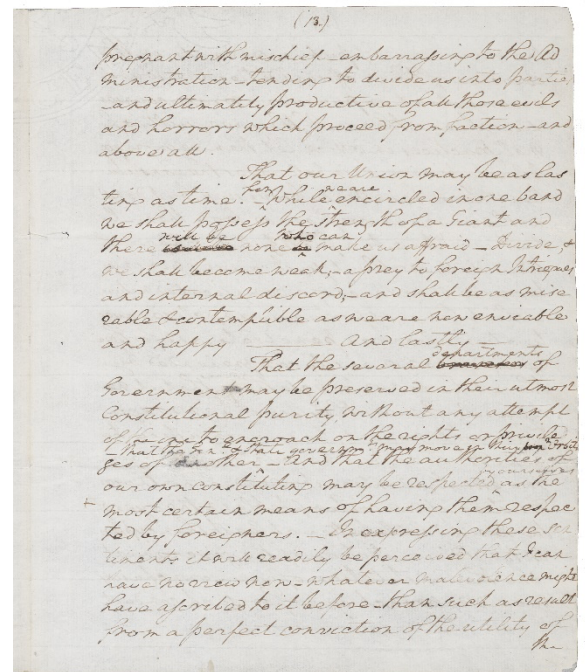 (13.)
pregnant with mischief – embarrassing to the Ad
ministration – tending to divide us into parties
– and ultimately productive of all those evils
and horrors which proceed from faction – and
above all.
That our Union may be as las
ting as time. – for while we are encircled in one band
we shall possess the strength of a Giant and
there will be none who can make us affraid – Divide, &
we shall become weak; – a prey to foreign Intriegues
and internal discord; – and shall be as mise
rable & contemptible as we are now enviable
and happy – And lastly –
That the several departments of
Government may be preserved in their utmost
Constitutional purity, without any attempt
of the one to encroach on the rights or privile
– that the Gen' & State governm'ts may move in their Orbits
ges of another – and that the authorities of
our own constituting may be respected by ourselves as the
most certain means of having them respec
ted by foreigners. – In expressing these sen
timents it will readily be perceived that I can
have no view now – whatever malevolence might
have ascribed to it before – than such as result
from a perfect conviction of the utility of
the